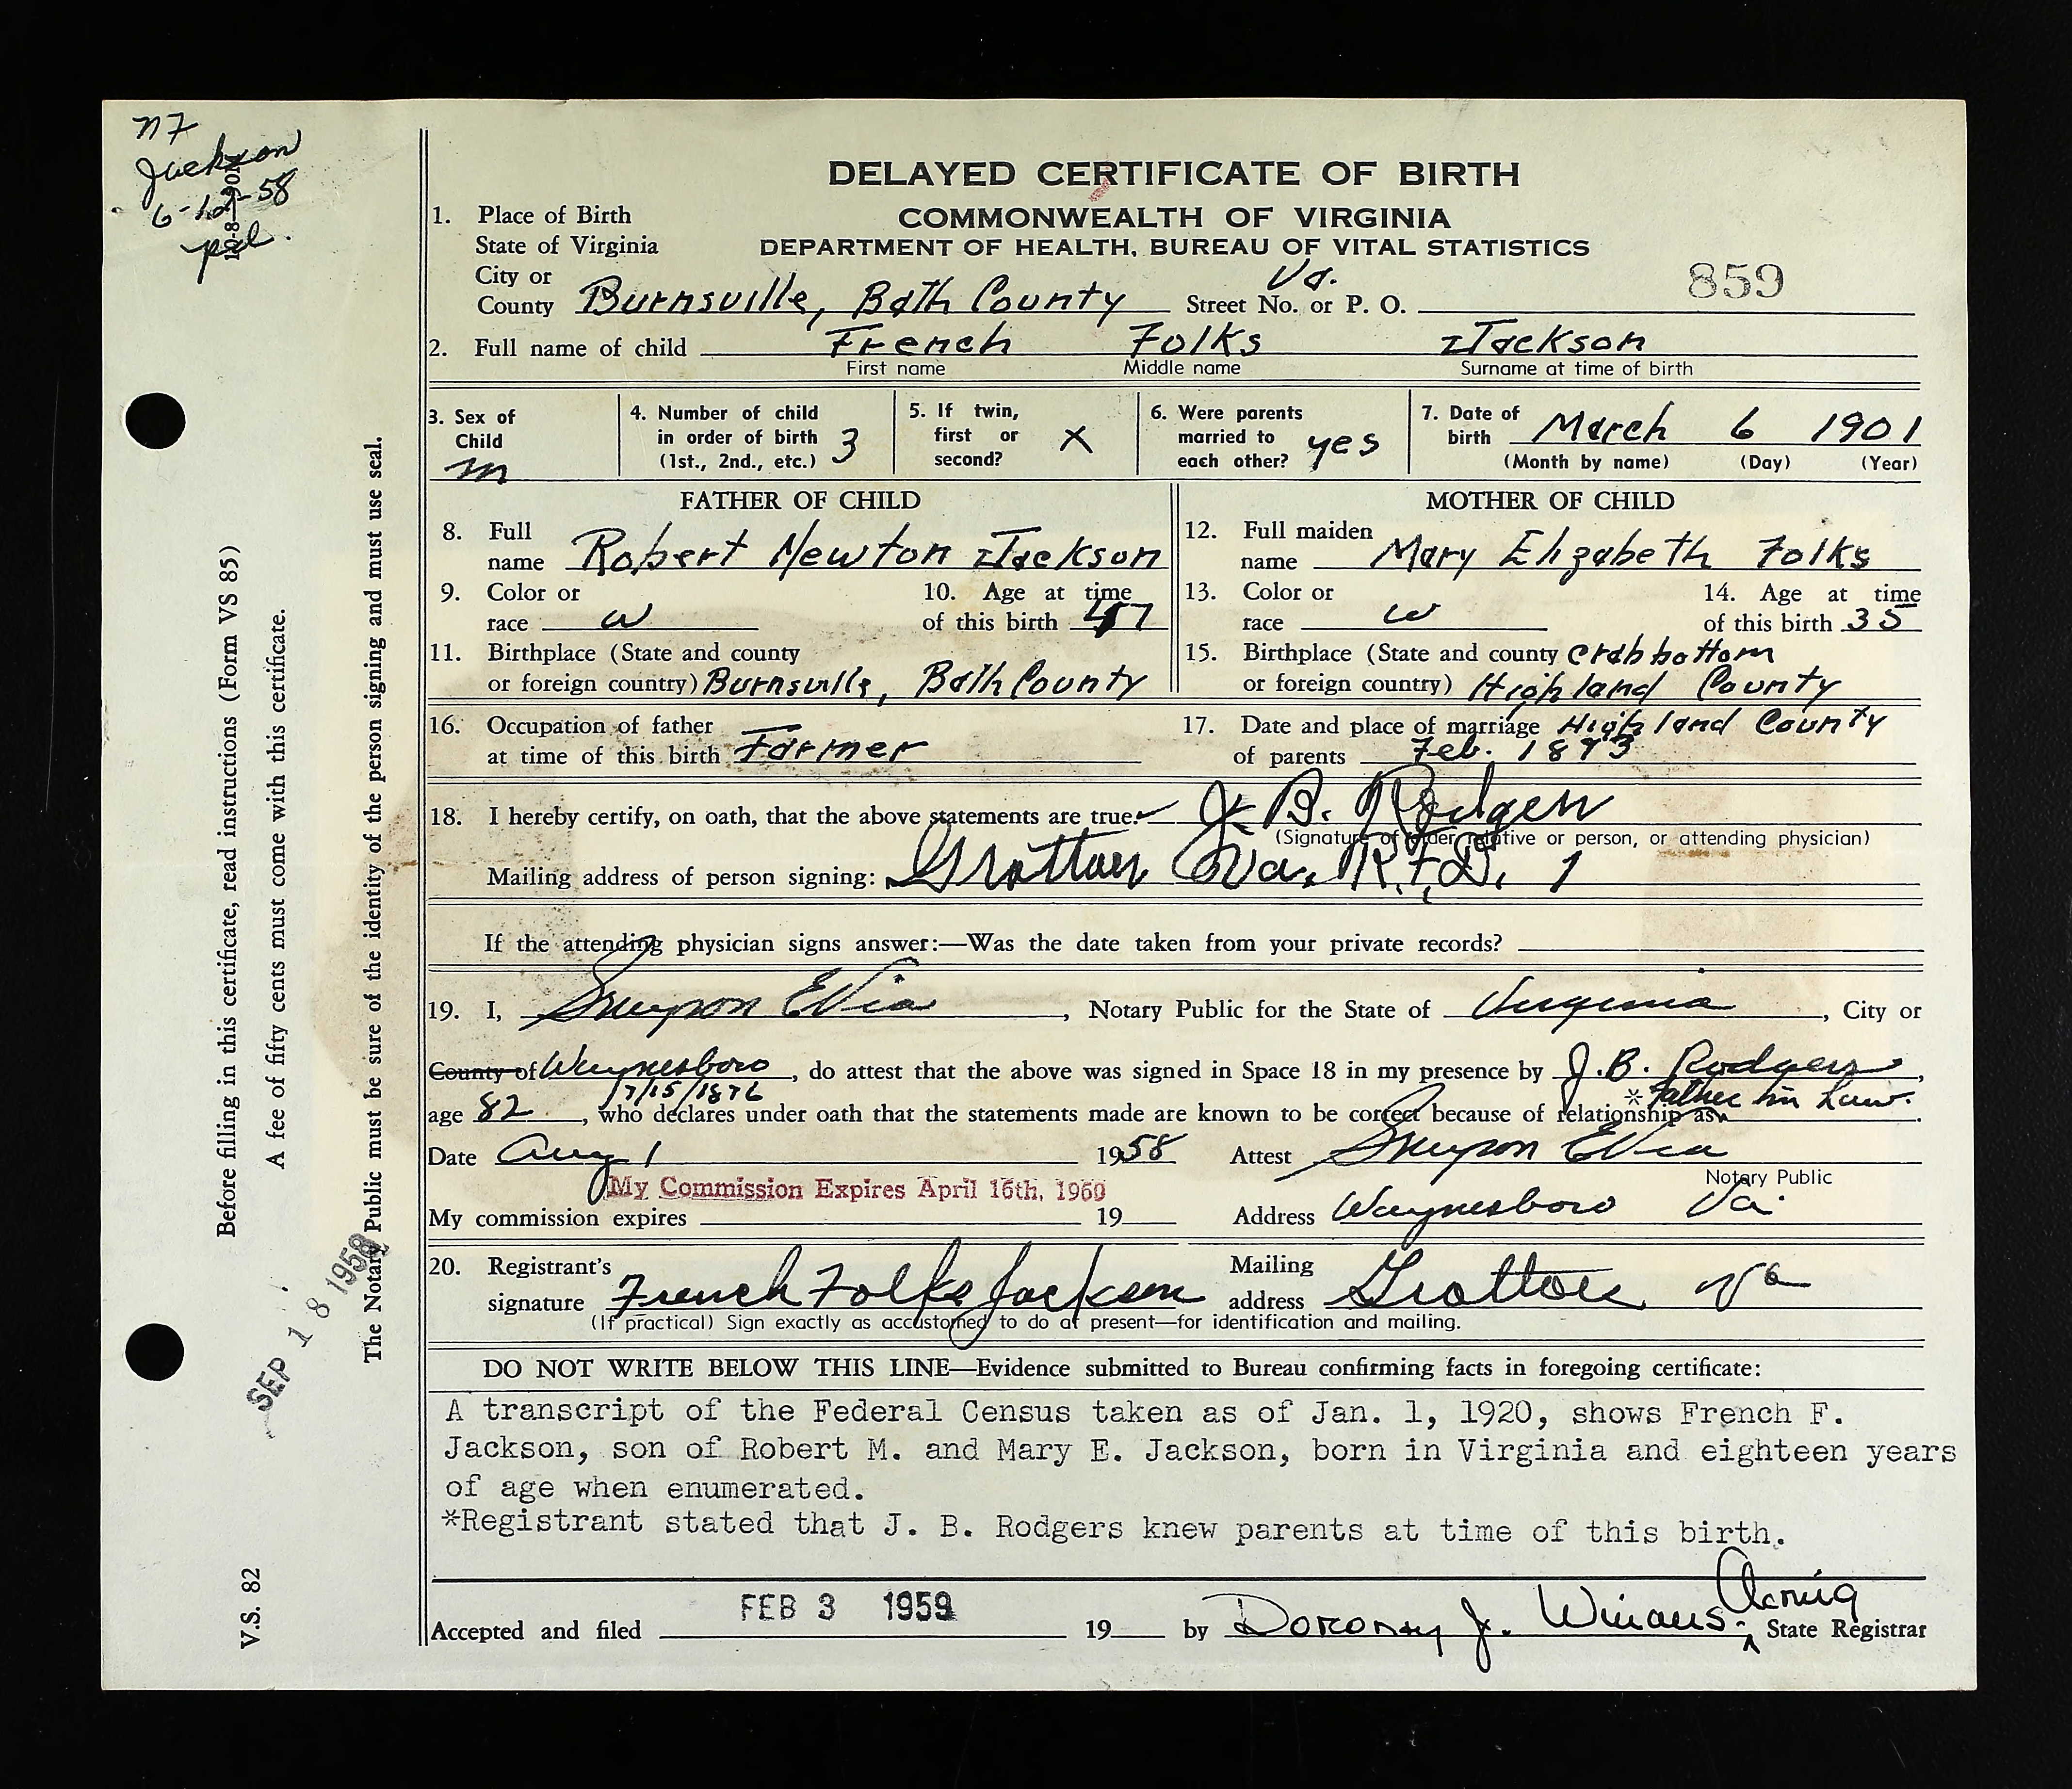 n7
Jackson
6-12-58
pd.
DELAYED CERTIFICATE OF BIRTH
COMMONWEALTH OF VIRGINIA
DEPARTMENT OF HEALTH, BUREAU OF VITAL STATISTICS
859
1. Place of Birth
State of Virginia
City or Va.
County Burnsville, Bath County Street No. or P. O.
2. Full name of child French Folks Jackson
First name Middle name Surname at time of birth
3. Sex of Child m
4. Number of child in order of birth (1st., 2nd., etc.) 3
5. If twin, first or second? X
6. Were parents married to each other? yes
7. Date of birth March 6 1901
(Month by name) (Day) (Year)
FATHER OF CHILD
8. Full name Robert Newton Jackson
9. Color or race W
10. Age at time of this birth 47
11. Birthplace (State and county or foreign country) Burnsville, Bath County
MOTHER OF CHILD
12. Full maiden name Mary Elizabeth Folks
13. Color or race W
14. Age at time of this birth 35
15. Birthplace (State and county or foreign country) Crabbottom Highland County
16. Occupation of father at time of this birth Farmer
17. Date and place of marriage of parents Highland County Feb. 1893
18. I hereby certify, on oath, that the above statements are true. J. B. Rodgers
(Signature of older relative or person, or attending physician)
Mailing address of person signing: Grottoes Va. R.F.D. 1
If the attending physician signs answer:—Was the date taken from your private records?
19. I, E Via, Notary Public for the State of Virginia, City or
County of Waynesboro, do attest that the above was signed in Space 18 in my presence by J. B. Rodgers,
7/15/1876 * Father in Law.
age 82, who declares under oath that the statements made are known to be correct because of relationship as
Date Aug 1 1958 Attest E Via
Notary Public
My Commission Expires April 16th, 1960
My commission expires 19 Address Waynesboro Va.
20. Registrant's signature French Folks Jackson Mailing address Grottoes Va
(If practical) Sign exactly as accustomed to do at present—for identification and mailing.
DO NOT WRITE BELOW THIS LINE—Evidence submitted to Bureau confirming facts in foregoing certificate:
A transcript of the Federal Census taken as of Jan. 1, 1920, shows French F.
Jackson, son of Robert M. and Mary E. Jackson, born in Virginia and eighteen years
of age when enumerated.
*Registrant stated that J. B. Rodgers knew parents at time of this birth.
Acting
Accepted and filed FEB 3 1959 19 by Dorothy J. Winans, State Registrar
Before filling in this certificate, read instructions (Form VS 85)
A fee of fifty cents must come with this certificate.
The Notary Public must be sure of the identity of the person signing and must use seal.
SEP 18 1958
V.S. 82